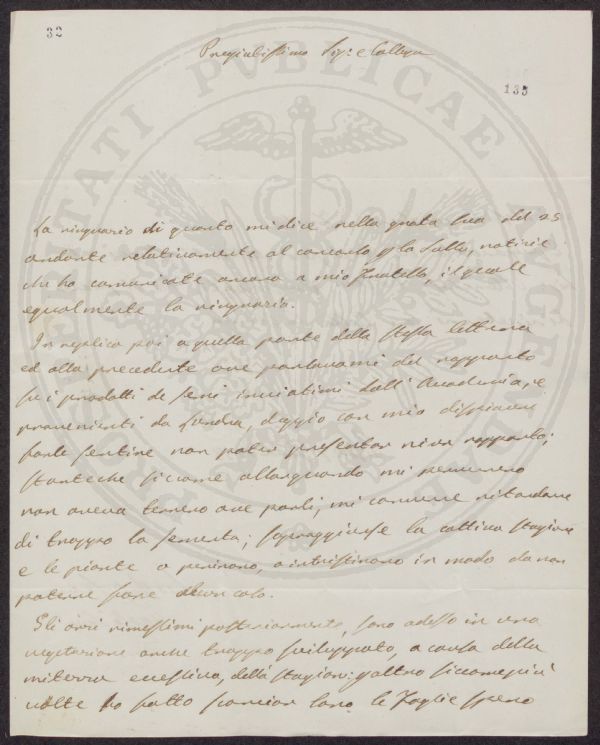 32
Pregiatissimo Sig.e Collega
133
La ringrazio di quanto mi dice nella grata Sua del 25
andante relativamente al concorso la Sulla, notizie
che ho comunicate ancora a mio Fratello, il quale
egualmente la ringrazia.
In replica poi a quella parte della stessa lettera
ed alla precedente ove parlavami del rapporto
su i prodotti de semi inviatimi dall' Accademia, e
provenienti da Londra, deggio con mio dispiacere
farle sentire non poter presentar niun rapporto;
stanteche siccome allorquando mi pervennero
non aveva terreno ove porli, mi convenne ritardare
di troppo la sementa; sopraggiunse la cattiva stagione
e le piante o perirono, o intristirono in modo da non
poterne fare alcun caso.
Gli orzi rimessimi posteriormente, sono adesso in una
vegetazione anche troppo sviluppata, a causa della
mitezza eccessiva, della stagione:
volte ho fatto le foglie spero
PROSPERITATI PVBLICAE AVGENDAE